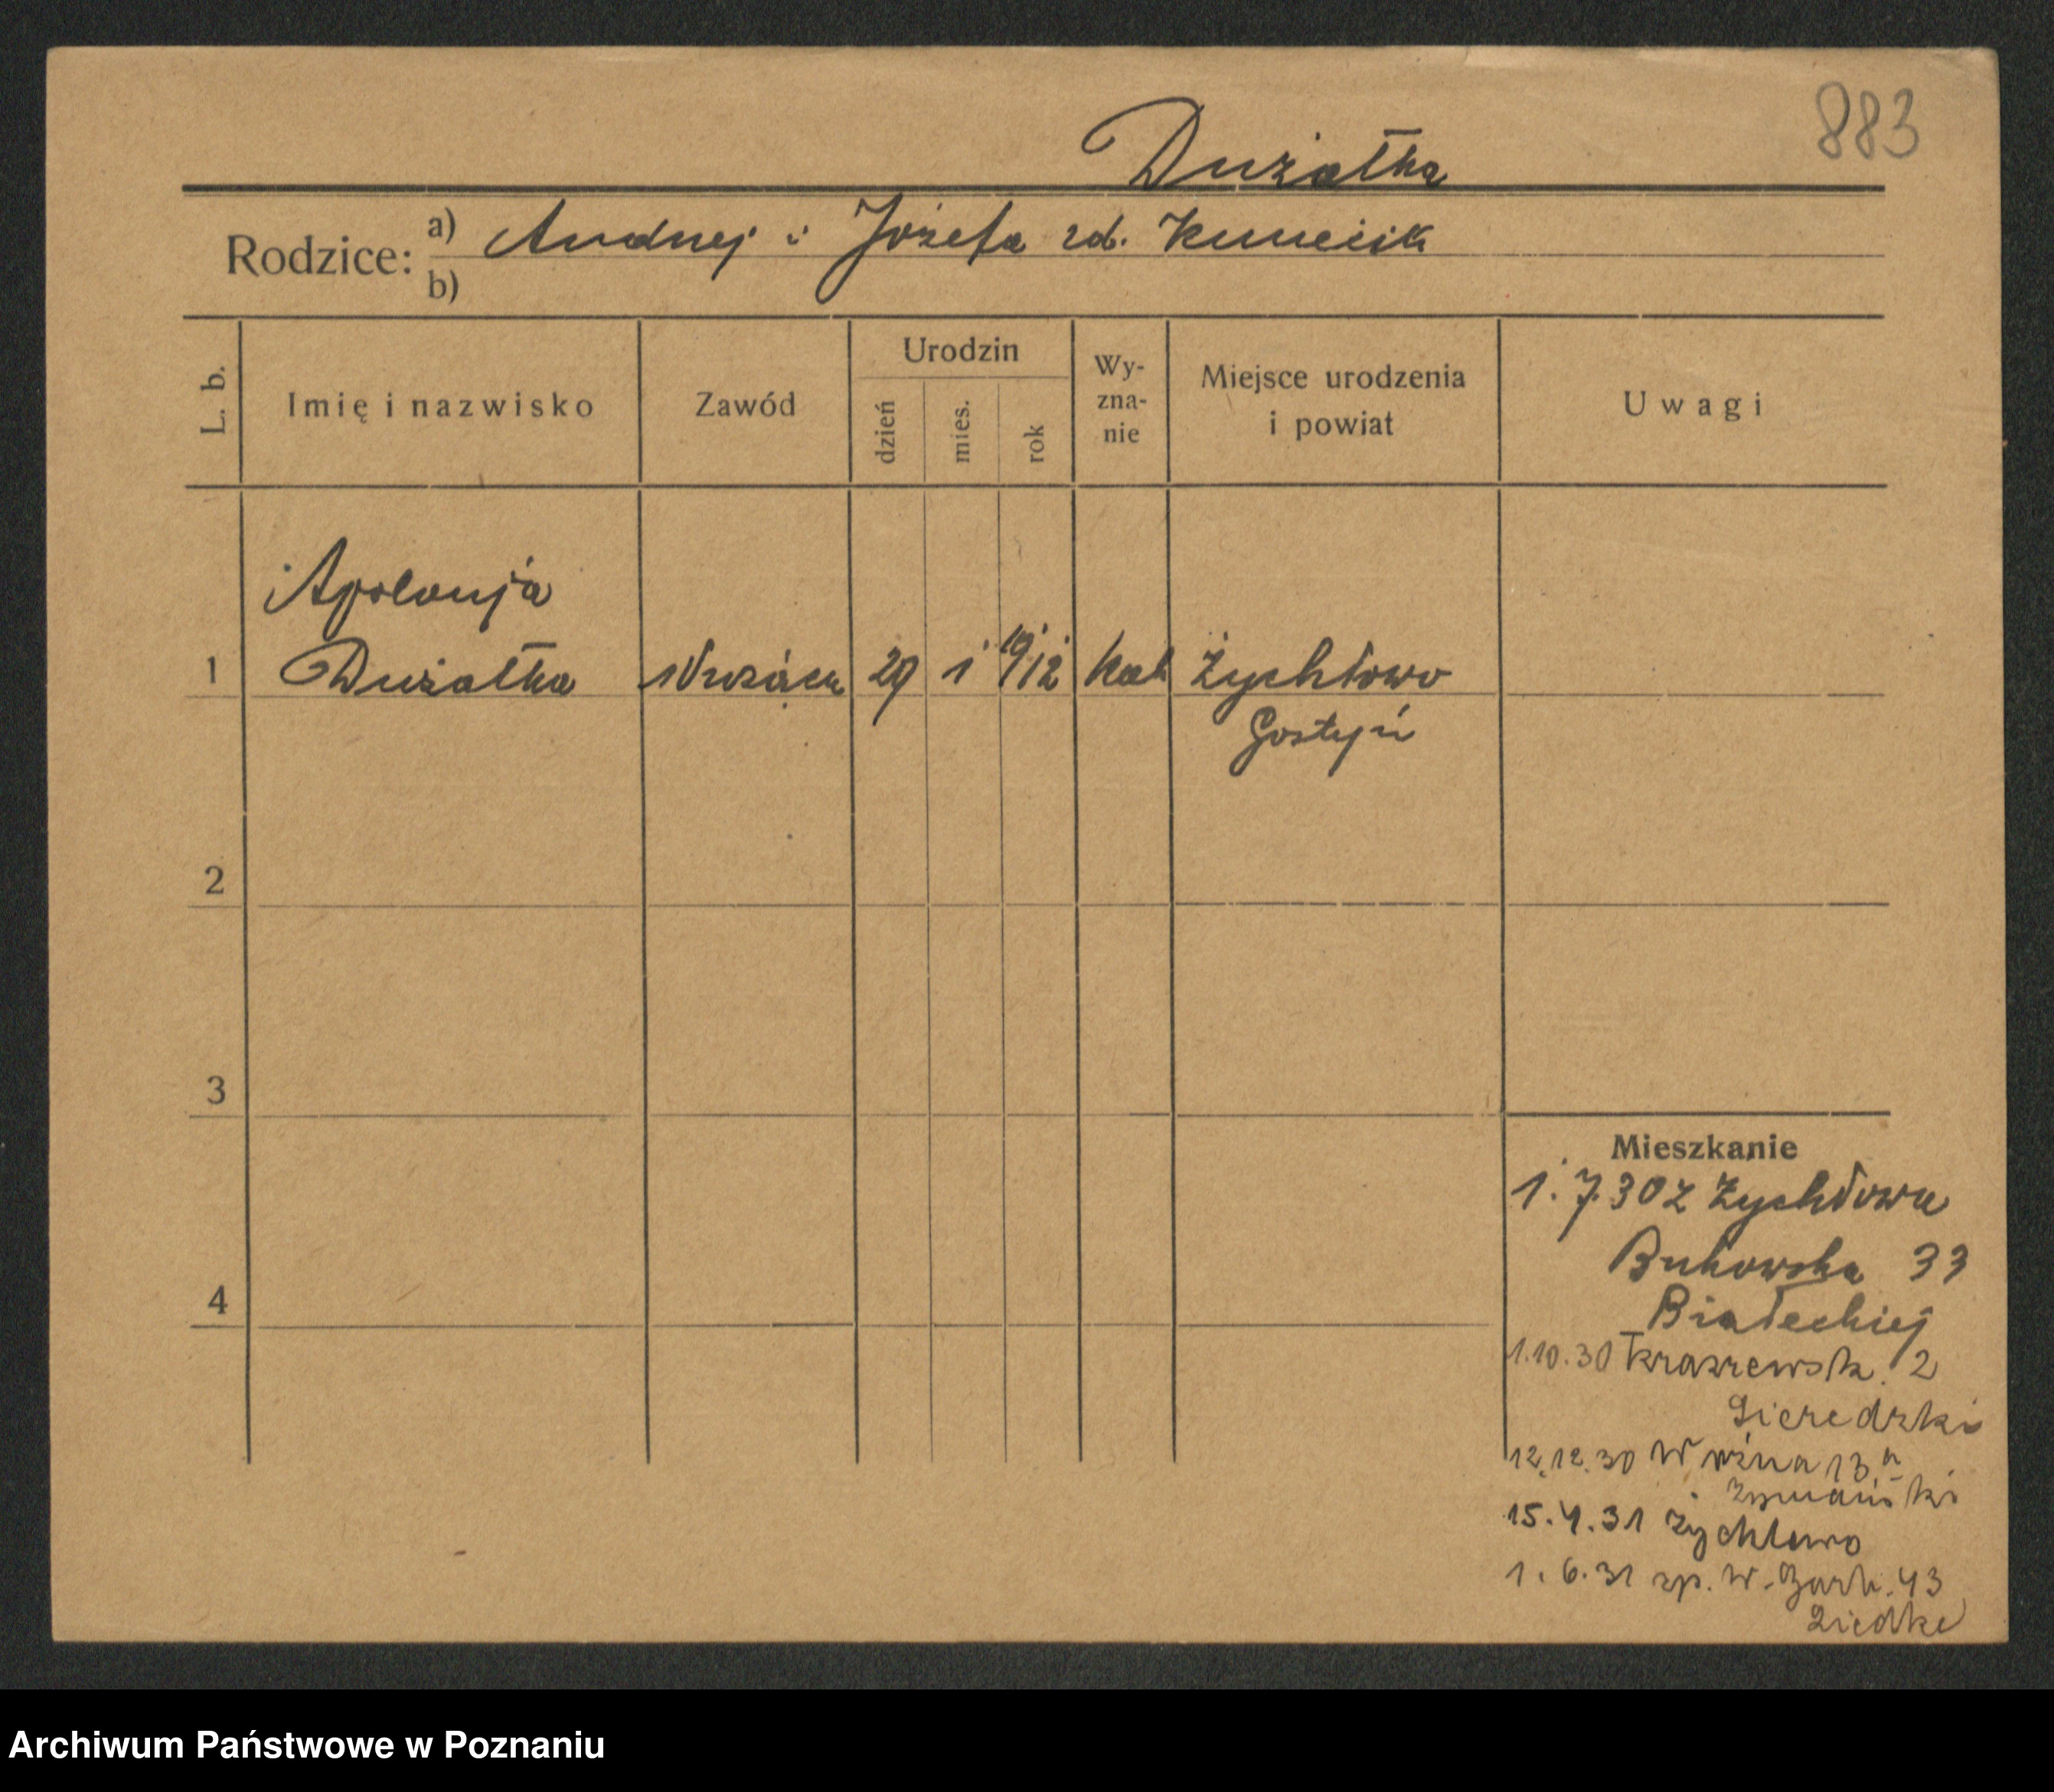 883
Dużałka
Rodzice: a) Andrzej i Józefa zd.
b)
L. b.
Imię i nazwisko
Zawód
Urodzin
dzień
mies.
rok
Wy-
zna-
nie
Miejsce urodzenia
i powiat
Uwagi
Apolonja
1 Dużałka służąca 29 1 1912 kat Żychlewo
Gostyń
2
3
4
Mieszkanie
1.7.30 z Żychlewa
Bukowska 33
Białeckiej
1.10.30 Kraszewsk. 2
Sieredzki
12.12.30 Woźna 13a
15.4.31 Żychlewo
1.6.31 zp. W. Garb. 43
Archiwum Państwowe w Poznaniu